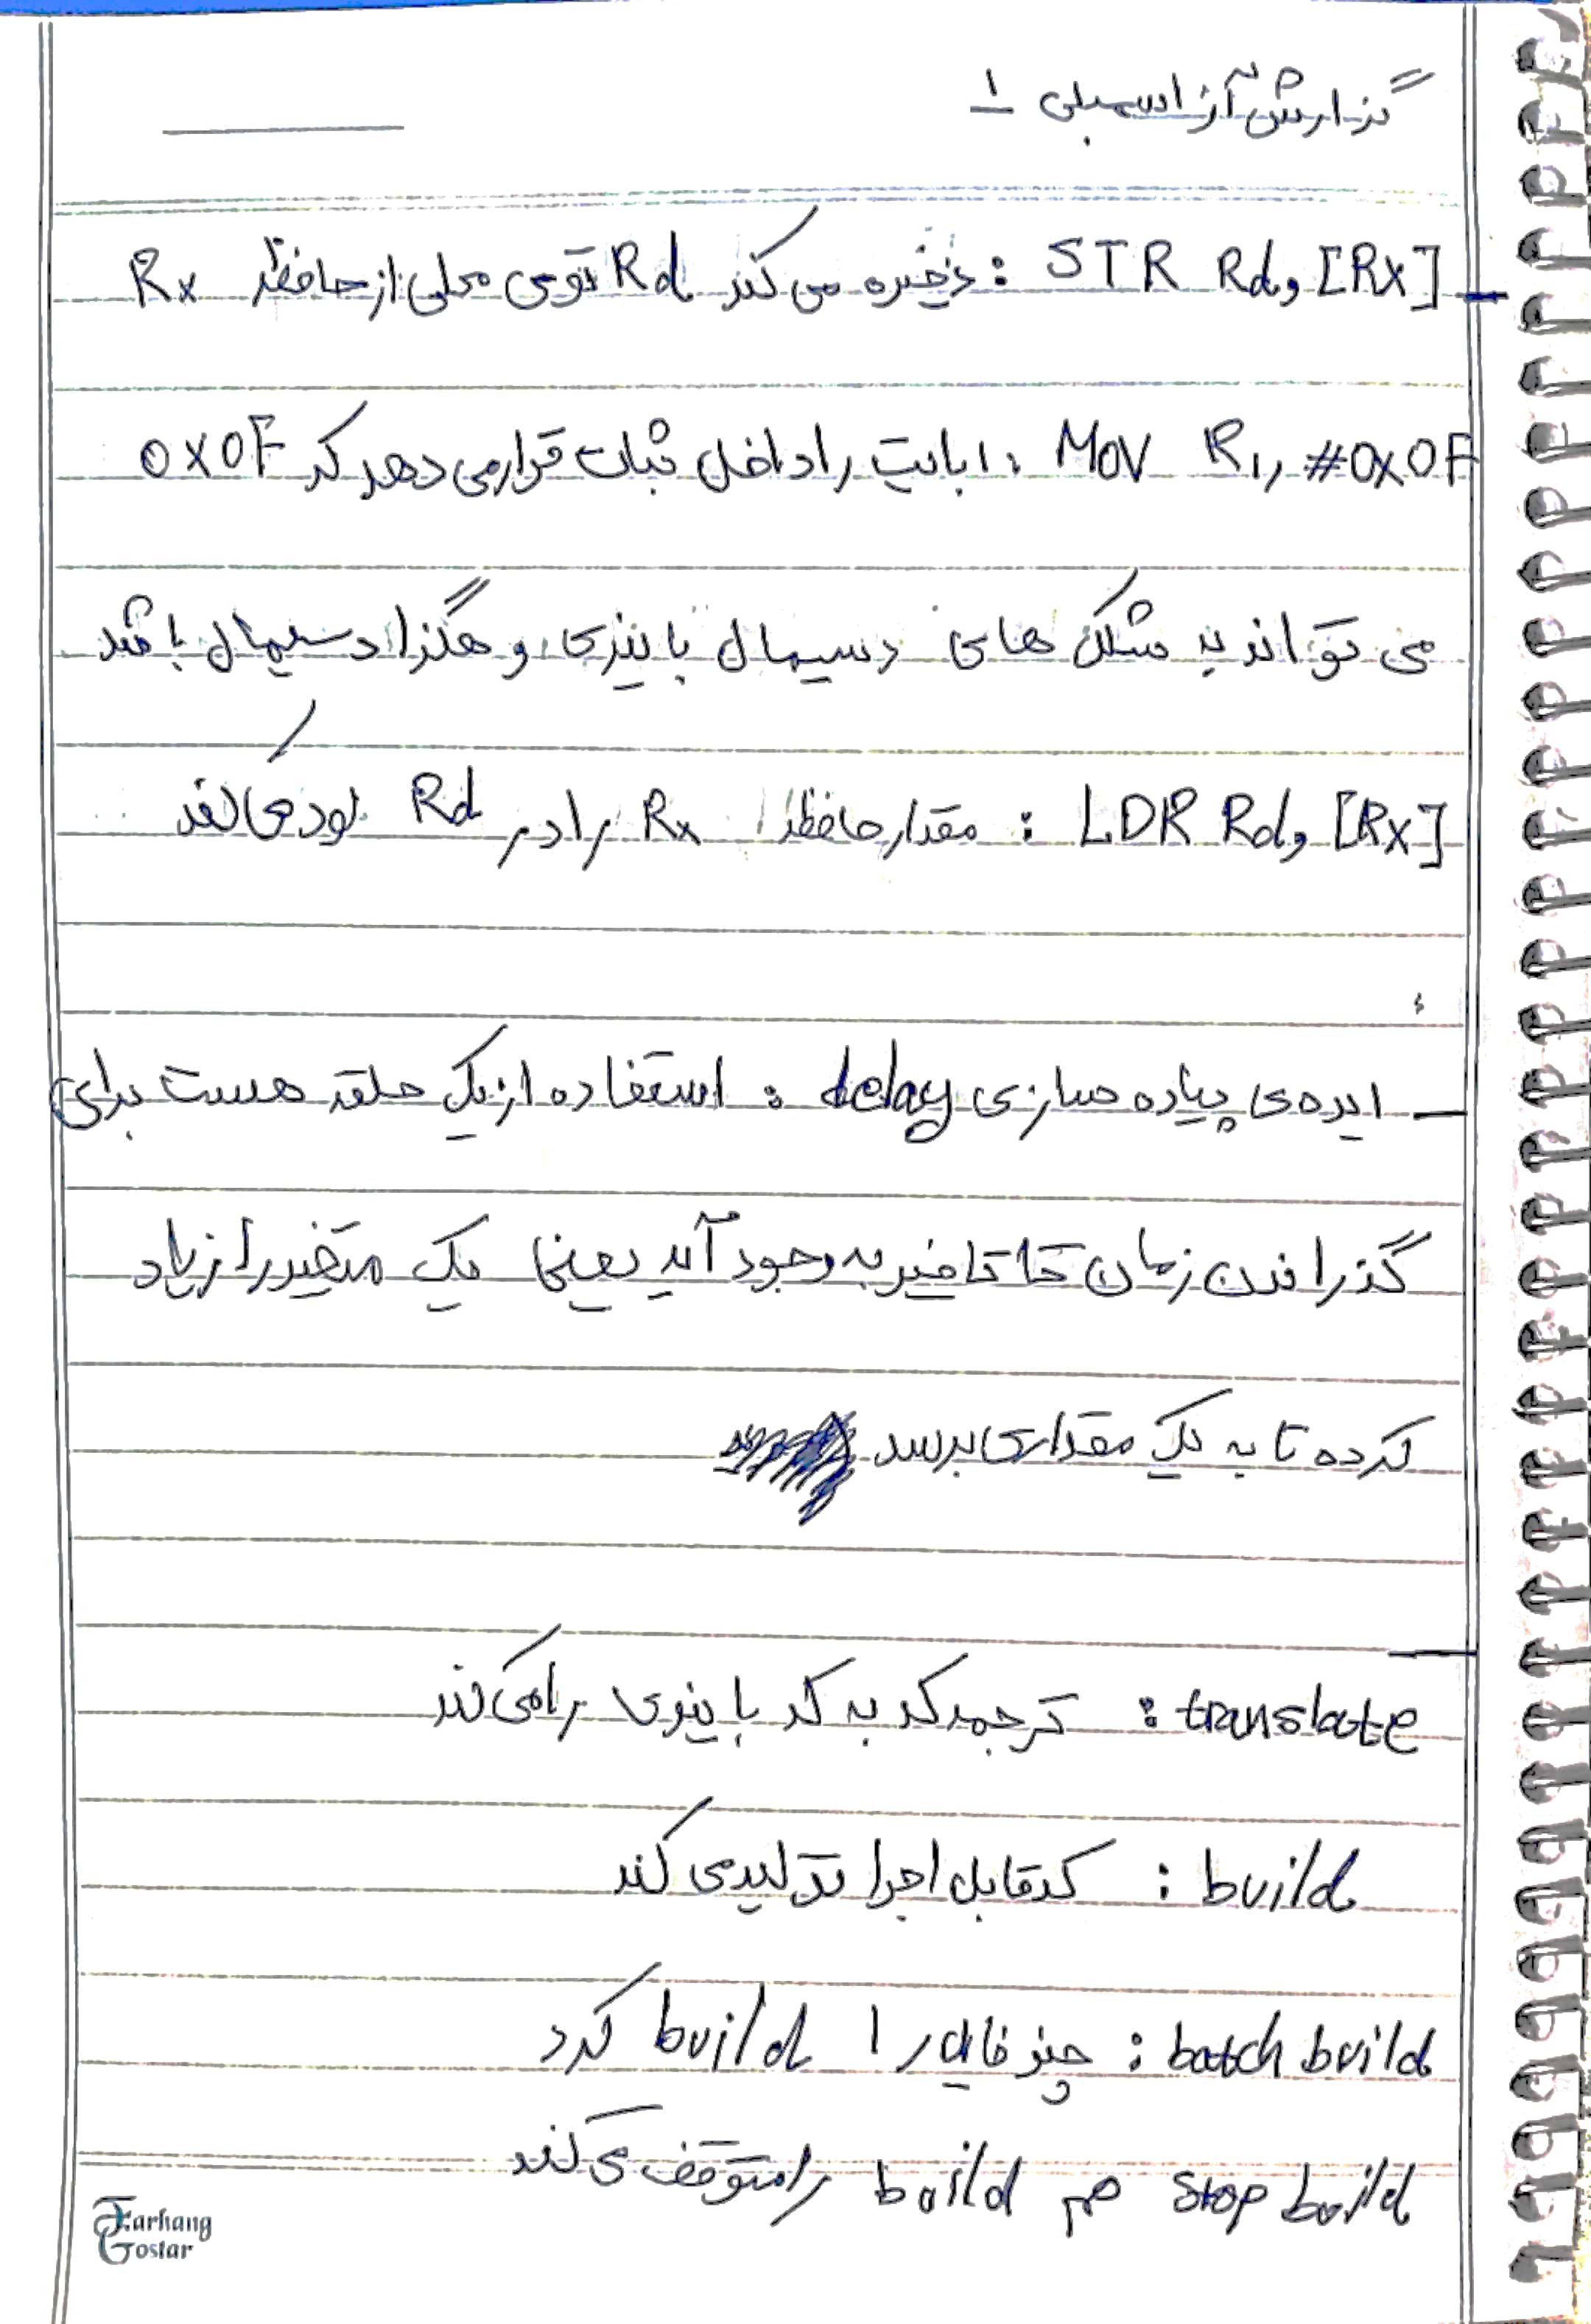 گزارش آز اسمبلی ۱
STR Rd, [Rx] : ذخیره می کند Rd توی محلی از حافظه Rx
MOV R1, #0x0F : ۱ بایت را داخل ثبات قرار می دهد که 0x0F
می تواند به شکل های دسیمال باینری و هگزا دسیمال باشد
LDR Rd, [Rx] : مقدار حافظه Rx را در Rd لود می کند
– ایده ی پیاده سازی delay : استفاده از یک حلقه هست برای
گذراندن زمان تا تاخیر به وجود آید یعنی یک متغیر را زیاد
کرده تا به یک مقداری برسد
translate : ترجمه کد به کد باینری را می کند
build : کد قابل اجرا تولید می کند
batch build : چند فایل را build کرد
stop build هم build را متوقف می کند
Farhang
Gostar